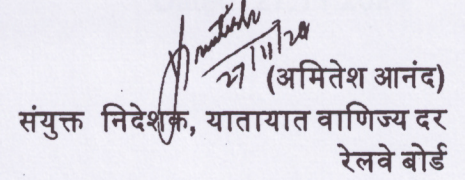 27/11/20
(अमितेश आनंद)
संयुक्त निदेशक, यातायात वाणिज्य दर
रेलवे बोर्ड